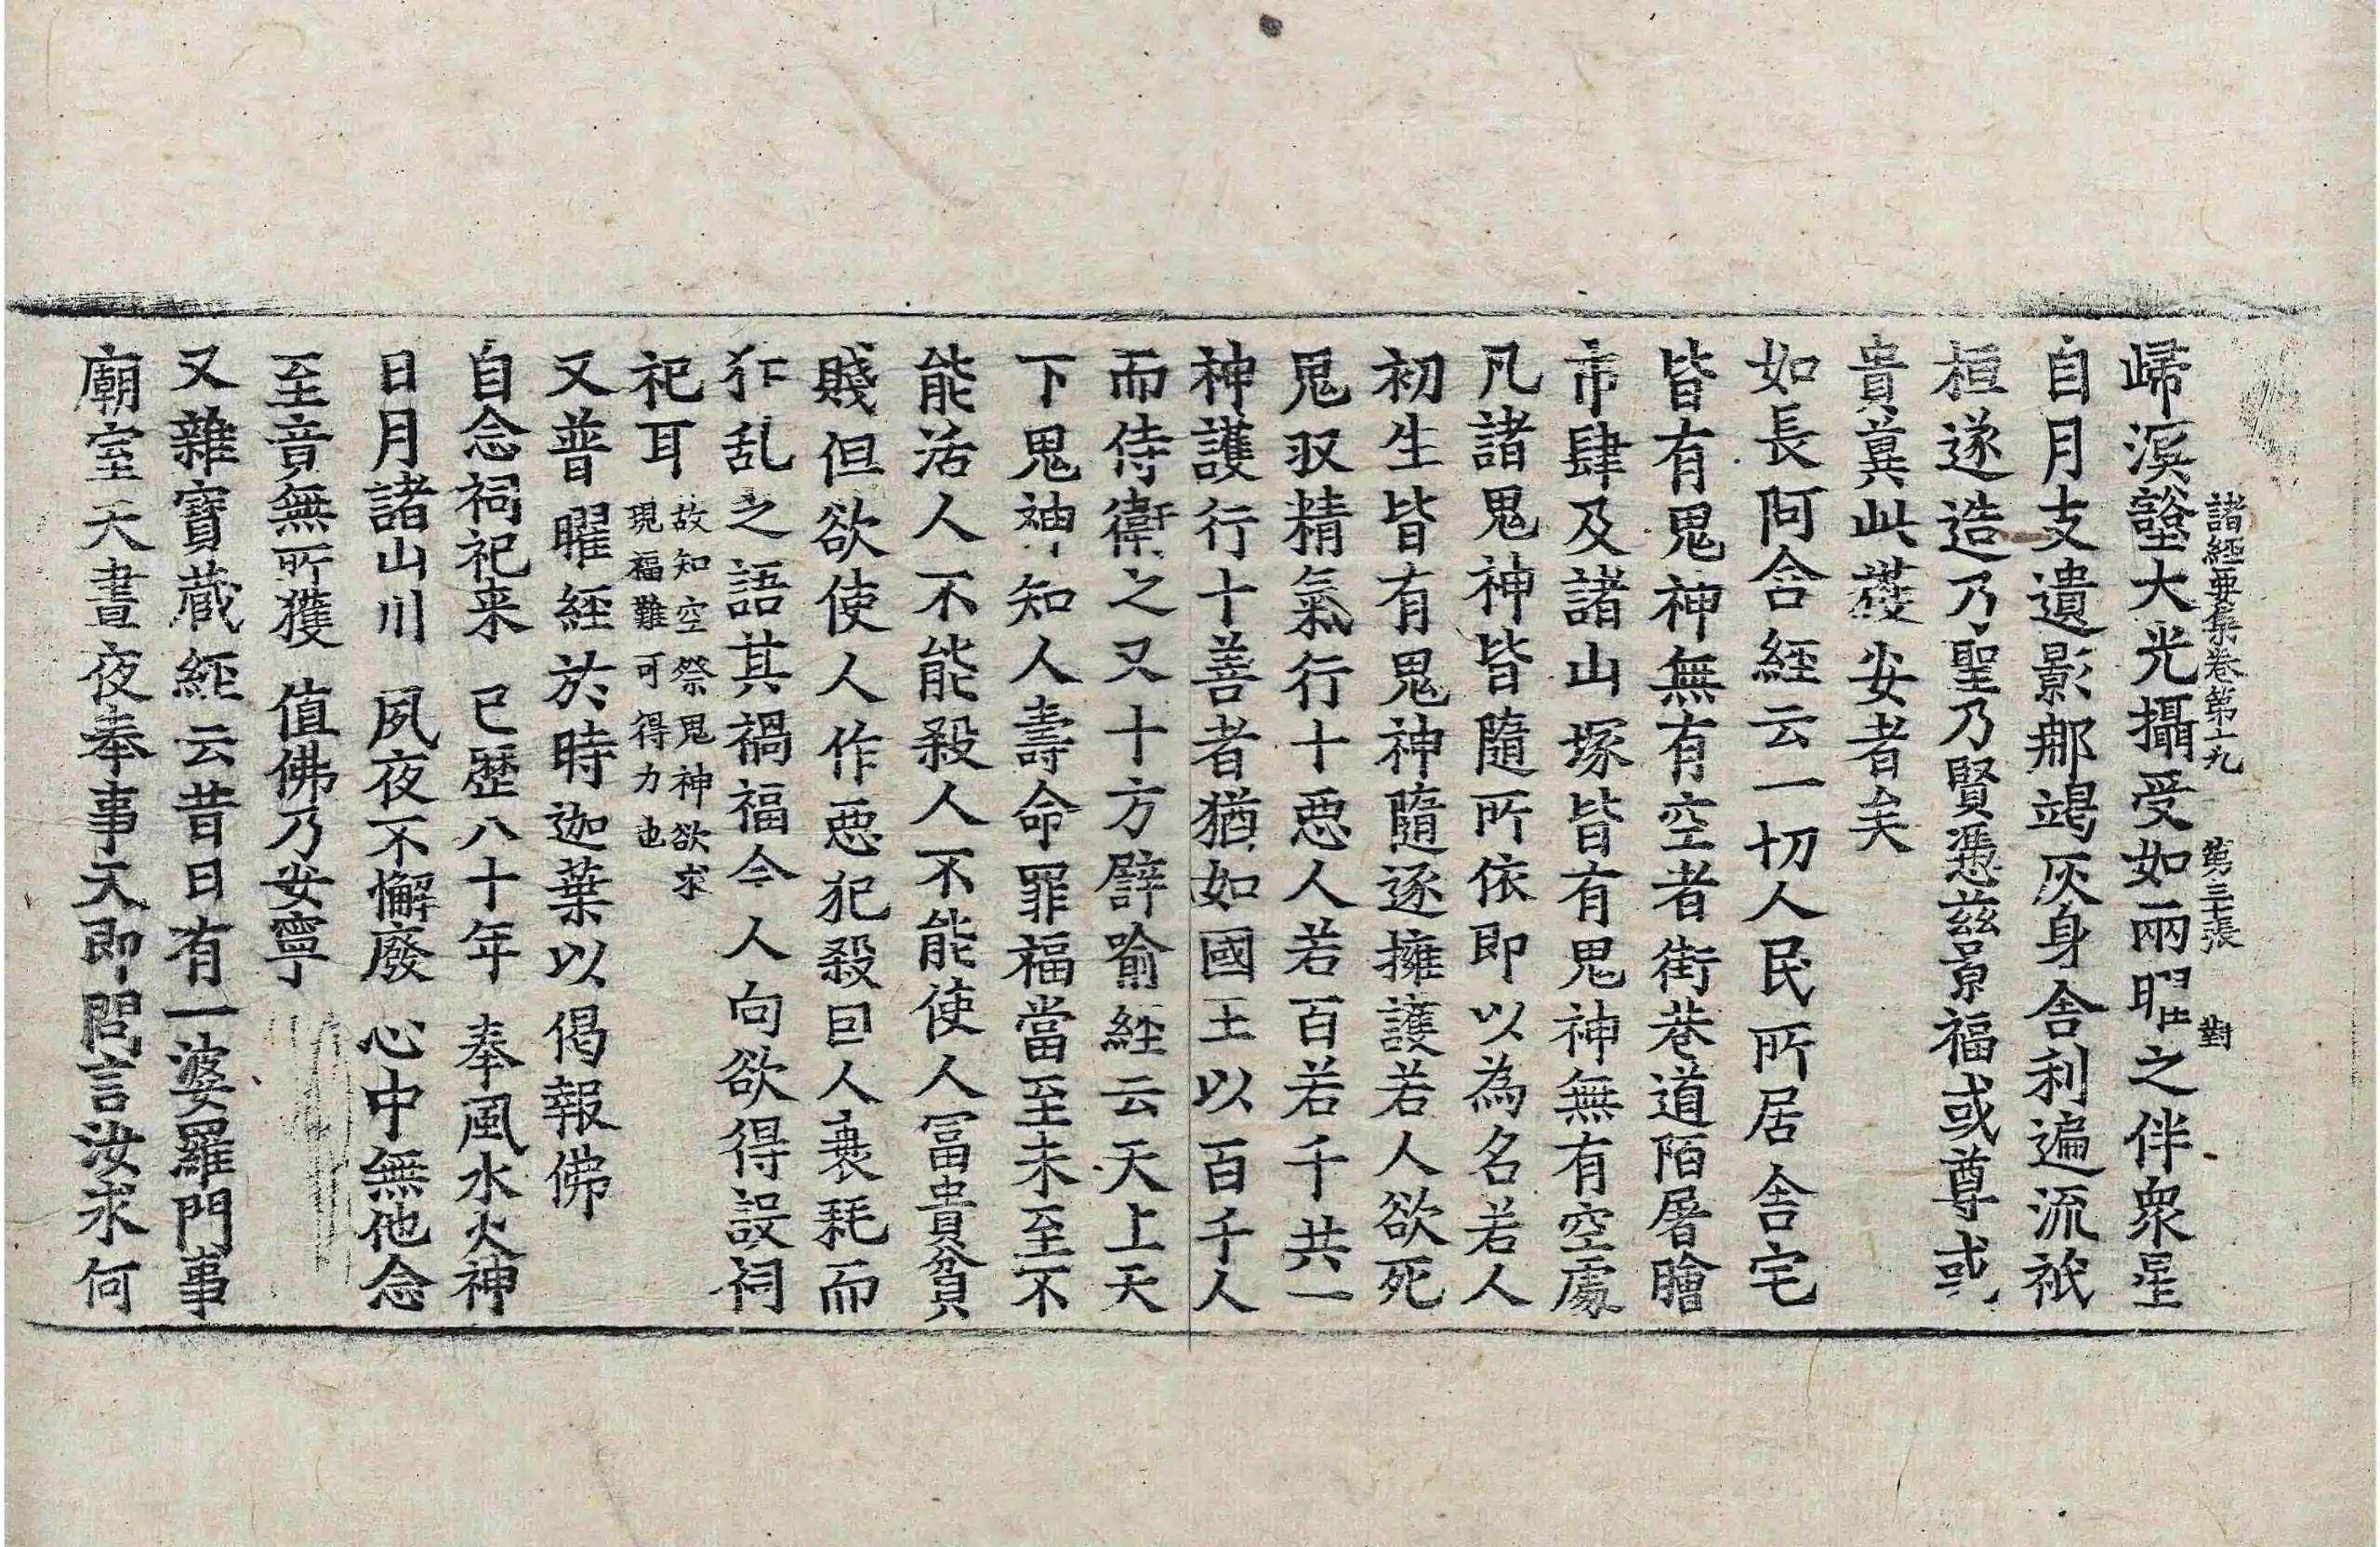 諸經要集卷第十九 第三十張 對
歸溟壑大光攝受如兩曜之伴衆星
自月支遺影那竭灰身舍利遍流祇
桓遂造乃聖乃賢憑茲景福或尊或
貴冀此護安者矣
如長阿含經云一切人民所居舍宅
皆有鬼神無有空者街巷道陌屠膾
市肆及諸山塚皆有鬼神無有空處
凡諸鬼神皆隨所依即以為名若人
初生皆有鬼神隨逐擁護若人欲死
鬼収精氣行十惡人若百若千共一
神護行十善者猶如國王以百千人
而侍衛之又十方譬喻經云天上天
下鬼神知人壽命罪福當至未至不
能活人不能殺人不能使人冨貴貧
賤但欲使人作惡犯殺因人衰耗而
犲乱之語其禍福令人向欲得設祠
祀耳 故知空祭鬼神欲求
現福難可得力也
又普曜經於時迦葉以偈報佛
自念祠祀来 已歷八十年 奉風水火神
日月諸山川 夙夜不懈廢 心中無他念
至竟無所獲 值佛乃安寧
又雜寶藏經云昔日有一婆羅門事
廟室天晝夜奉事天即問言汝求何